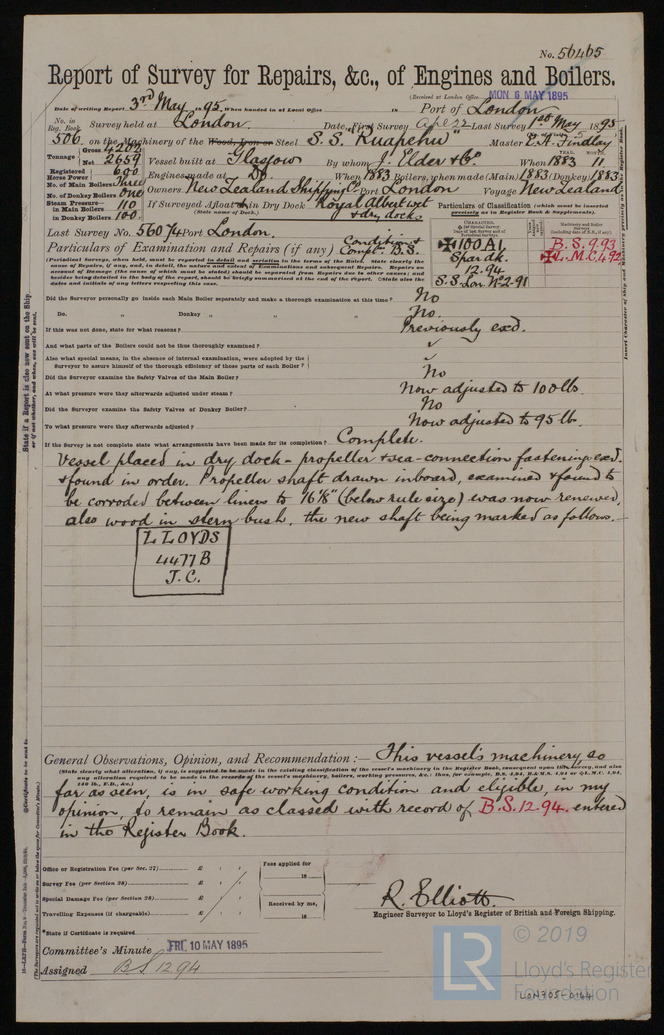 No. 56465
Report of Survey for Repairs, &c., of Engines and Boilers.
(Received at London Office MON 6 MAY 1895
Date of writing Report 3rd May 95. When handed in at Local Office 18 Port of London
No. in Reg. Book Survey held at London. Date, First Survey Ape 22 Last Survey 1st May 1895
506 on the Machinery of the Wood, Iron or Steel S.S. "Ruapehu" Master E. A. Findlay
Tonnage Gross 4202 Net 2659 Vessel built at Glasgow By whom J. Elder & Co. When 1883 11
Registered Horse Power 600 Engines made at Do When 1883 Boilers, when made (Main) 1883 (Donkey) 1883
No. of Main Boilers Three
No. of Donkey Boilers One Owners New Zealand Shipping Co. Port London Voyage New Zealand
Steam Pressure in Main Boilers 110 in Donkey Boilers 100 If Surveyed Afloat & in Dry Dock Royal Albert wet & dry docks
(State name of Dock.)
Particulars of Classification (which must be inserted precisely as in Register Book & Supplements).
Last Survey No. 56074 Port London.
Particulars of Examination and Repairs (if any) Condition & Compln. B.S.
✠100A1 Spar dk. 12.94 S.S. Lon. No 2-91
B.S. 9.93
✠L.M.C. 4.92
Did the Surveyor personally go inside each Main Boiler separately and make a thorough examination at this time? No
Do. " Donkey " " " No.
If this was not done, state for what reasons? Previously exd.
And what parts of the Boilers could not be thoroughly examined? ✓
Also what special means, in the absence of internal examination, were adopted by the Surveyor to assure himself of the thorough efficiency of those parts of each Boiler? ✓
Did the Surveyor examine the Safety Valves of the Main Boiler? No
At what pressure were they afterwards adjusted under steam? Now adjusted to 100 lbs.
Did the Surveyor examine the Safety Valves of Donkey Boiler? No
To what pressure were they afterwards adjusted? Now adjusted to 95 lb.
If the Survey is not complete state what arrangements have been made for its completion? Complete.
Vessel placed in dry dock - propeller & sea-connection fastening exd.
& found in order. Propeller shaft drawn inboard, examined & found to
be corroded between liners to 16⅛" (below rule size) was now renewed,
also wood in stern bush, the new shaft being marked as follows.
LLOYDS
4477B
J.C.
General Observations, Opinion, and Recommendation:— This vessel's machinery so
far as seen, is in safe working condition and eligible, in my
opinion, to remain as classed with record of B.S. 12.94. entered
in the Register Book.
Office or Registration Fee (per Sec. 27) £ : :
Survey Fee (per Section 28) £ : :
Special Damage Fee (per Section 28) £ : :
Travelling Expenses (if chargeable) £ : :
Fees applied for 18
Received by me, 18
R. Elliott.
Engineer Surveyor to Lloyd's Register of British and Foreign Shipping.
*State if Certificate is required
Committee's Minute FRI. 10 MAY 1895
Assigned BS 12 94
LR © 2019
Lloyd's Register
Foundation
LON705-0164